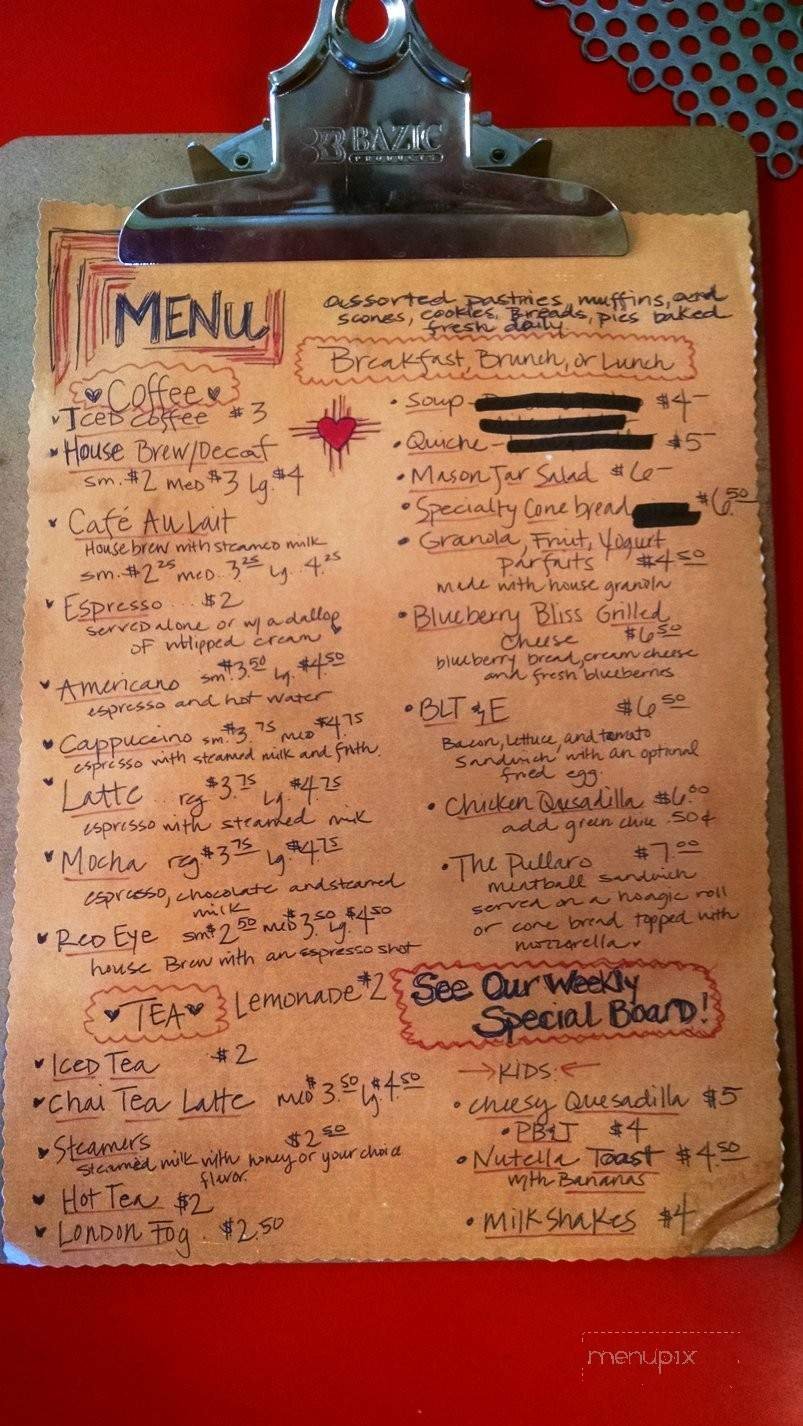 BAZIC
PRODUCTS
MENU
assorted pastries, muffins, and
scones, cookies, Breads, pies baked
fresh daily
Coffee
Iced coffee $3
House Brew/Decaf
sm. $2 med $3 lg. $4
Café Au Lait
House brew with steamed milk
sm. $2.25 med. 3.25 lg. 4.25
Espresso ... $2
served alone or w/ a dallop
of whipped cream
Americano sm. $3.50 lg. $4.50
espresso and hot water
Cappuccino sm. $3.75 med $4.75
espresso with steamed milk and froth.
Latte ... reg $3.75 lg. $4.75
espresso with steamed milk
Mocha reg $3.75 lg. $4.75
espresso, chocolate and steamed
milk
Red Eye sm. $2.50 med $3.50 lg. $4.50
house Brew with an espresso shot
TEA
Lemonade $2
Iced Tea $2
Chai Tea Latte med $3.50 lg $4.50
Steamers $2.50
steamed milk with honey or your choice
flavor.
Hot Tea $2
London Fog . $2.50
Breakfast, Brunch, or Lunch
Soup - $4-
Quiche - $5-
Mason Jar Salad $6-
Specialty Cone bread $6.50
Granola, Fruit, Yogurt
parfaits $4.50
made with house granola
Blueberry Bliss Grilled
Cheese $6.50
blueberry bread, cream cheese
and fresh blueberries
BLT & E $6.50
Bacon, lettuce, and tomato
Sandwich with an optional
fried egg.
Chicken Quesadilla $6.00
add green chile .50¢
The Pullaro $7.00
meatball sandwich
served on a hoagie roll
or cone bread topped with
mozzorella
See Our Weekly
Special Board!
KIDS
cheesy Quesadilla $5
PB&J $4
Nutella Toast $4.50
with Bananas
Milkshakes $4
menupix